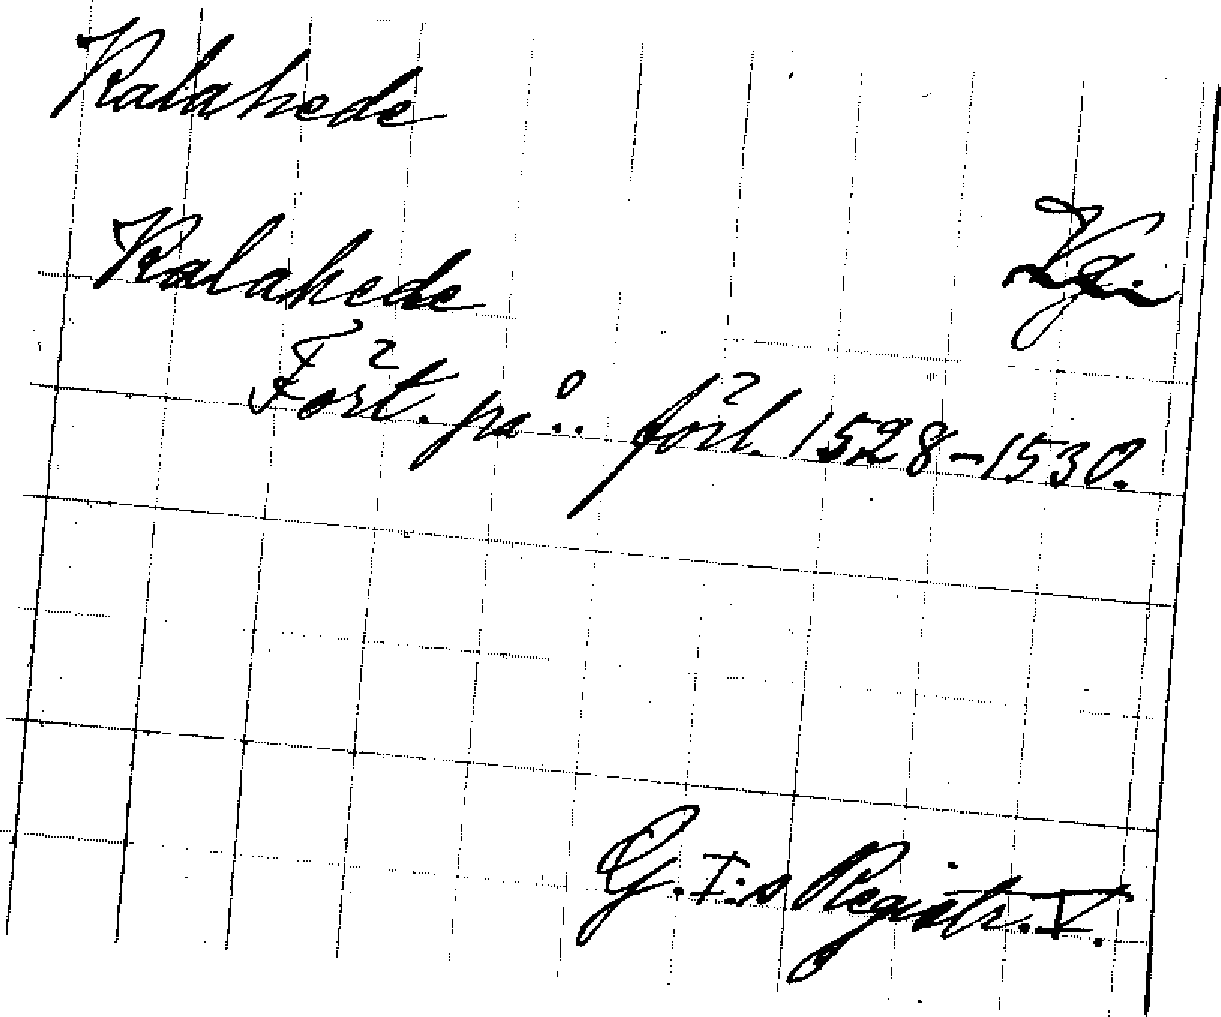 Kalahede
Kalahede
Vg.
Fört. på .. förl. 1528-1530.
G. I:s Registr. V.